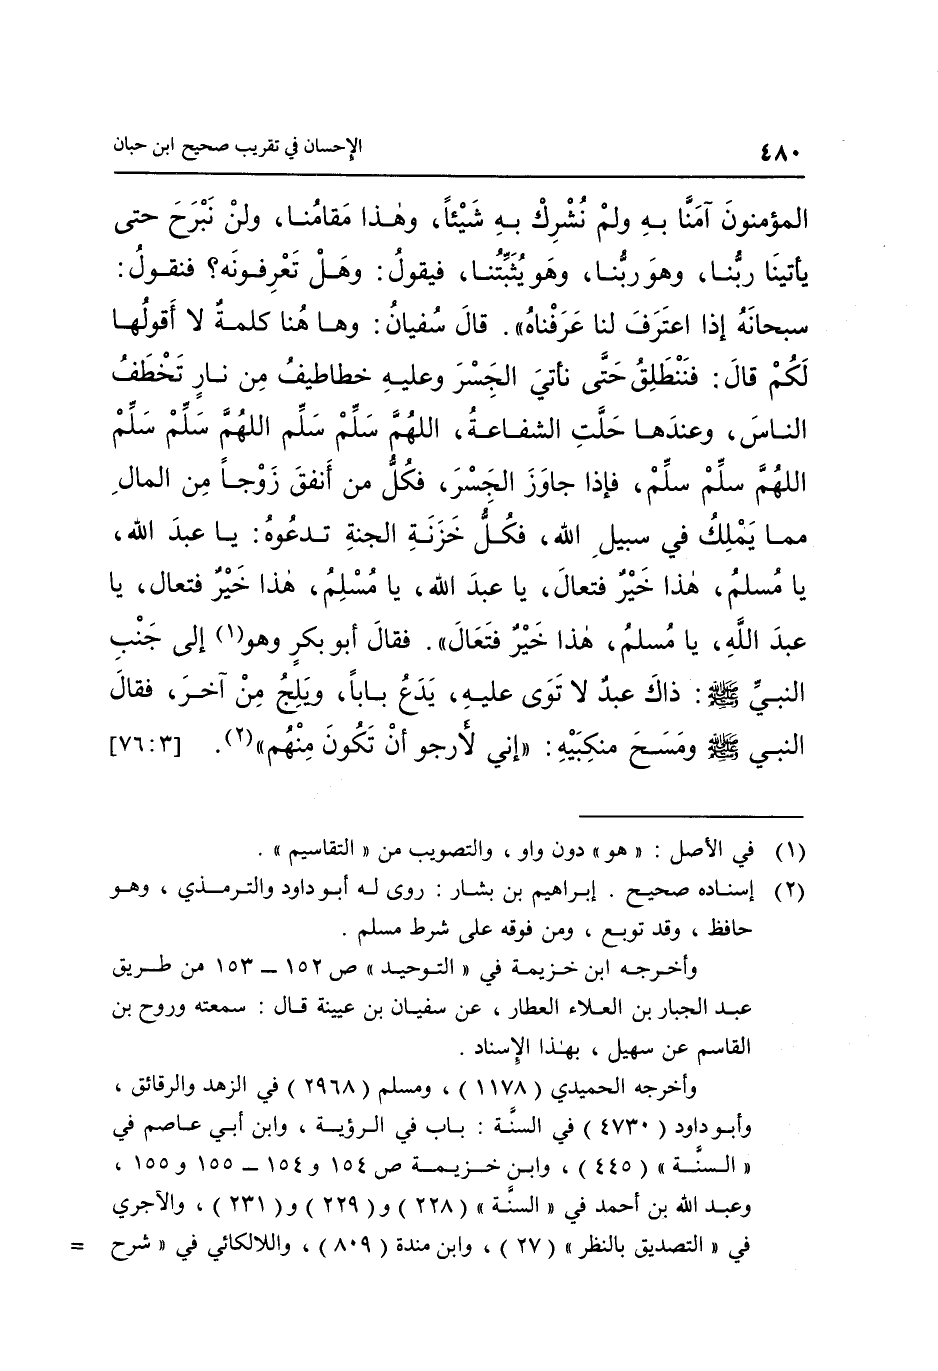 ٤٨٠ الإحسان في تقريب صحيح ابن حبان
المؤمنونَ آمَنَّا بهِ ولمْ نُشْرِكْ بهِ شَيْئاً، وهٰذا مَقامُنا، ولنْ نَبْرَحَ حتى
يأتينَا ربُّنا، وهوَ ربُّنا، وهَو يُثَبِّتُنا، فيقولُ: وهَلْ تَعْرِفونَه؟ فنقولُ:
سبحانَهُ إذا اعتَرَفَ لنا عَرَفْناهُ». قالَ سُفيانُ: وها هُنا كلمةٌ لا أَقولُها
لَكُمْ قالَ: فنَنْطَلِقُ حَتَّى نأتيَ الجَسْرَ وعليهِ خطاطيفُ مِن نارٍ تَخْطَفُ
الناسَ، وعندَها حَلَّتِ الشفاعةُ، اللهُمَّ سَلِّمْ سَلِّم اللهُمَّ سَلِّمْ سَلِّمْ
اللهُمَّ سلِّمْ سلِّمْ، فإذا جاوَزَ الجَسْرَ، فكُلُّ من أَنفقَ زَوْجاً مِن المالِ
مما يَمْلِكُ في سبيلِ الله، فكُلُّ خَزَنَةِ الجنةِ تدعُوهُ: يا عبدَ الله،
يا مُسلمُ، هٰذا خَيْرٌ فتعالَ، يا عبدَ الله، يا مُسْلِمُ، هٰذا خَيْرٌ فتعال، يا
عبدَ اللَّهِ، يا مُسلمُ، هٰذا خَيْرٌ فَتَعَالَ». فقالَ أبو بكرٍ وهو(١) إلى جَنْبِ
النبيِّ ﷺ: ذاكَ عبدٌ لا تَوَى عليهِ، يَدَعُ باباً، ويَلِجُ مِنْ آخرَ، فقالَ
النبي ﷺ ومَسَحَ منكِبَيْهِ: «إني لأَرجو أنْ تَكُونَ مِنْهُم»(٢). [٧٦:٣]
(١) في الأصل : « هو» دون واو ، والتصويب من « التقاسيم » .
(٢) إسناده صحيح . إبراهيم بن بشار : روى له أبو داود والترمذي ، وهو
حافظ ، وقد توبع ، ومن فوقه على شرط مسلم .
وأخرجه ابن خزيمة في « التوحيد » ص ١٥٢ ـ ١٥٣ من طريق
عبد الجبار بن العلاء العطار ، عن سفيان بن عيينة قال : سمعته وروح بن
القاسم عن سهيل ، بهٰذا الإسناد .
وأخرجه الحميدي ( ١١٧٨ ) ، ومسلم ( ٢٩٦٨ ) في الزهد والرقائق ،
وأبو داود ( ٤٧٣٠ ) في السنَّة : باب في الرؤية ، وابن أبي عاصم في
« السنَّة » ( ٤٤٥ ) ، وابن خزيمة ص ١٥٤ و ١٥٤ ـ ١٥٥ و ١٥٥ ،
وعبد الله بن أحمد في « السنَّة » ( ٢٢٨ ) و ( ٢٢٩ ) و ( ٢٣١ ) ، والآجري
في « التصديق بالنظر » ( ٢٧ ) ، وابن مندة ( ٨٠٩ ) ، واللالكائي في « شرح =